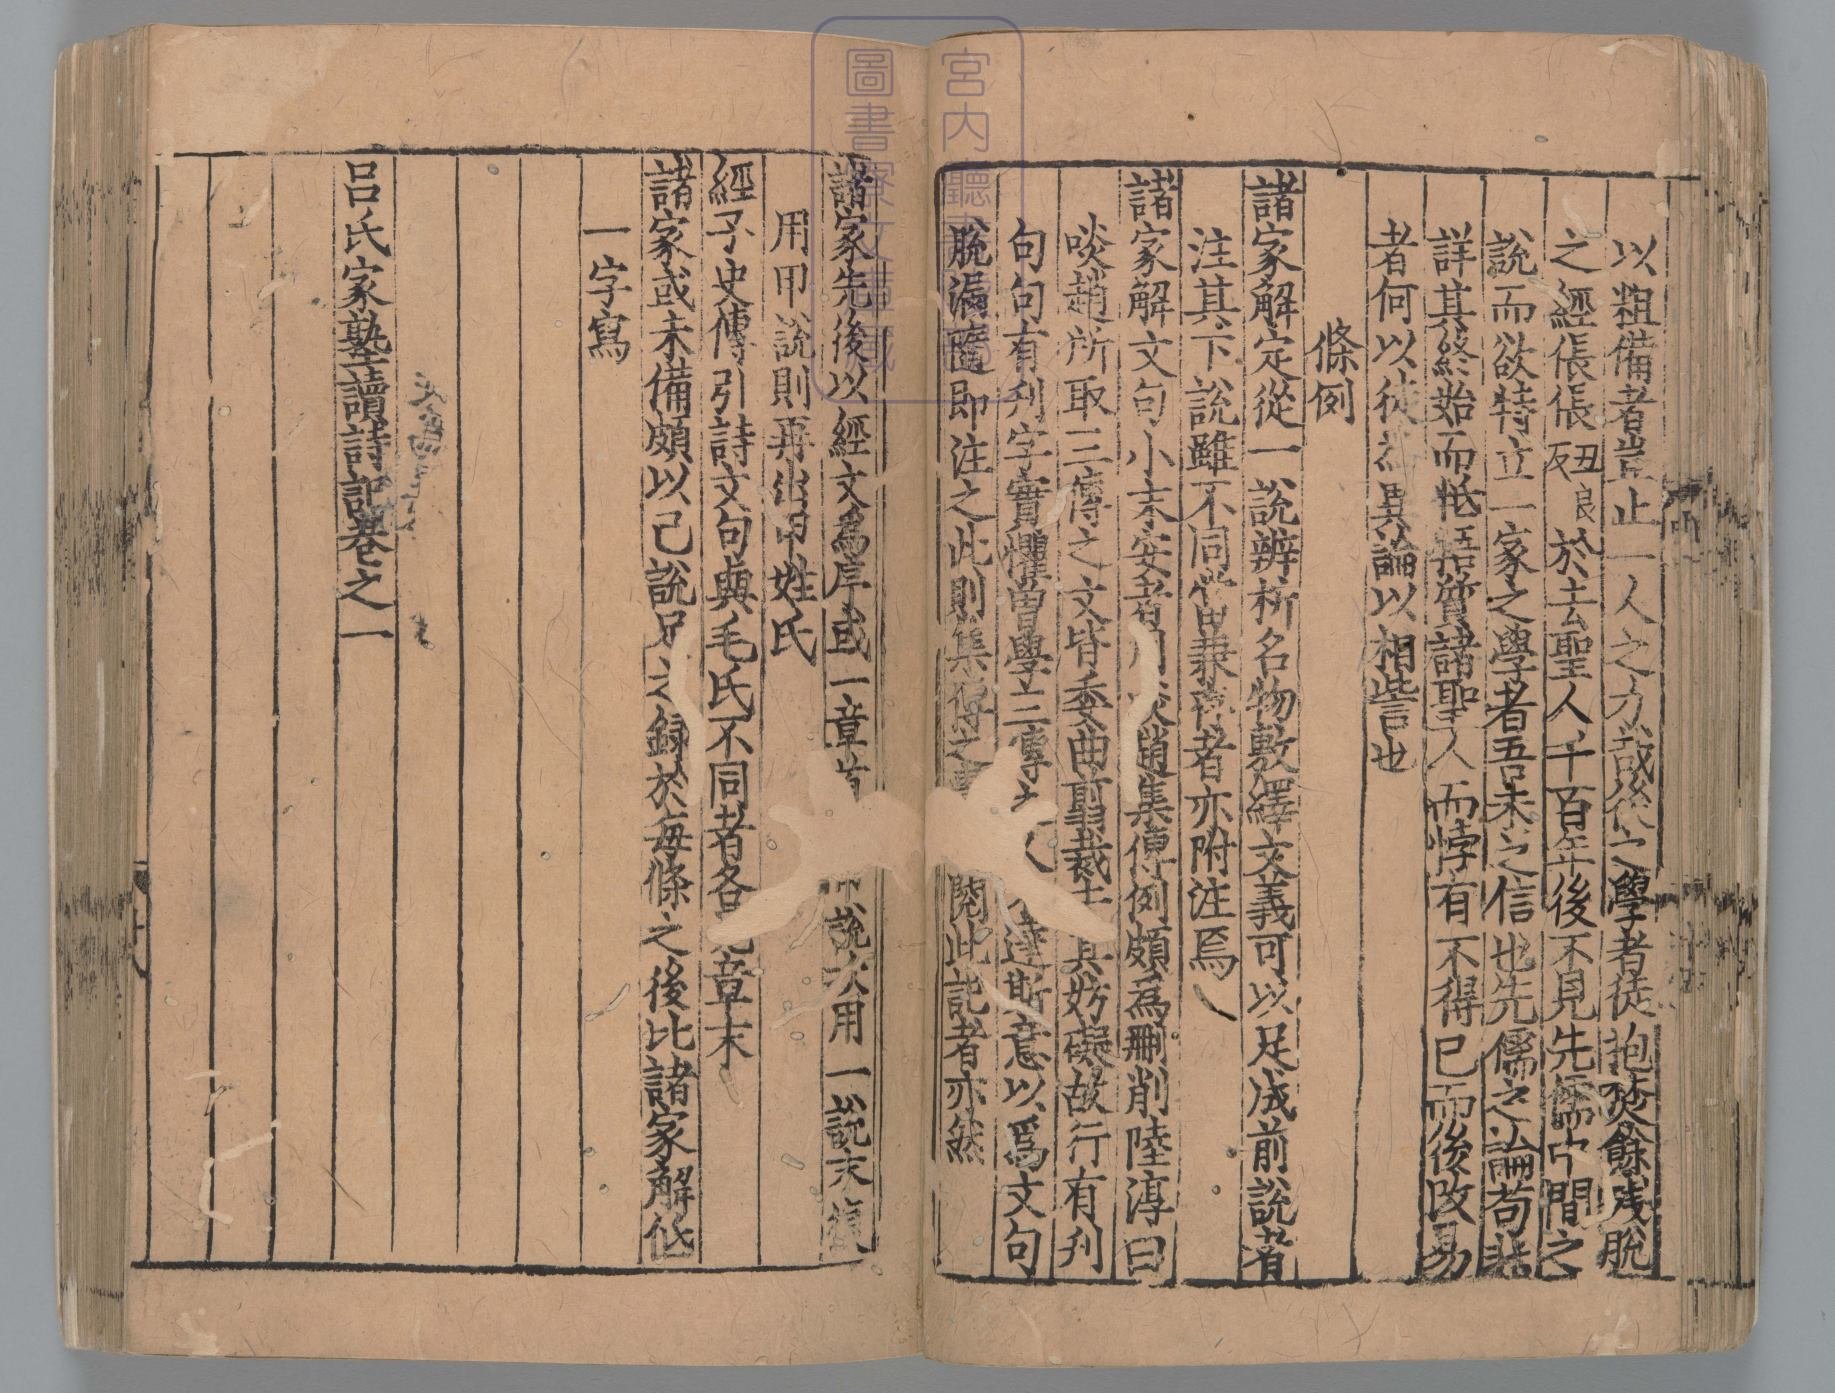 以粗備者豈止一人之力哉後之學者徒抱焚餘殘脫
之經倀倀丑良反於去聖人千百年後不見先儒中間之
說而欲特立一家之學者吾未之信也先儒之論苟非
詳其終始而牴牾質諸聖人而悖有不得已而後改易
者何以徒為異論以相訾也
條例
諸家解定從一說辨析名物敷繹文義可以足成前說者
注其下說雖不同當兼存者亦附注焉
諸家解文句小未安者用啖趙集傳例頗為刪削陸淳曰
啖趙所取三傳之文皆委曲翦裁去其妨礙故行有刋
句句有刋字實懼曾學三傳之人達斯意以爲文句
脫漏隨即注之此則集傳之閱此記者亦然
諸家先後以經文爲序或一章首說次用一說末復
用甲說則再出甲姓氏
經子史傳引詩文句與毛氏不同者各章末
諸家或未備頗以己說足之録於每條之後比諸家解低
一字寫
呂氏家塾讀詩記卷之一
宮內廳
圖書寮文庫藏